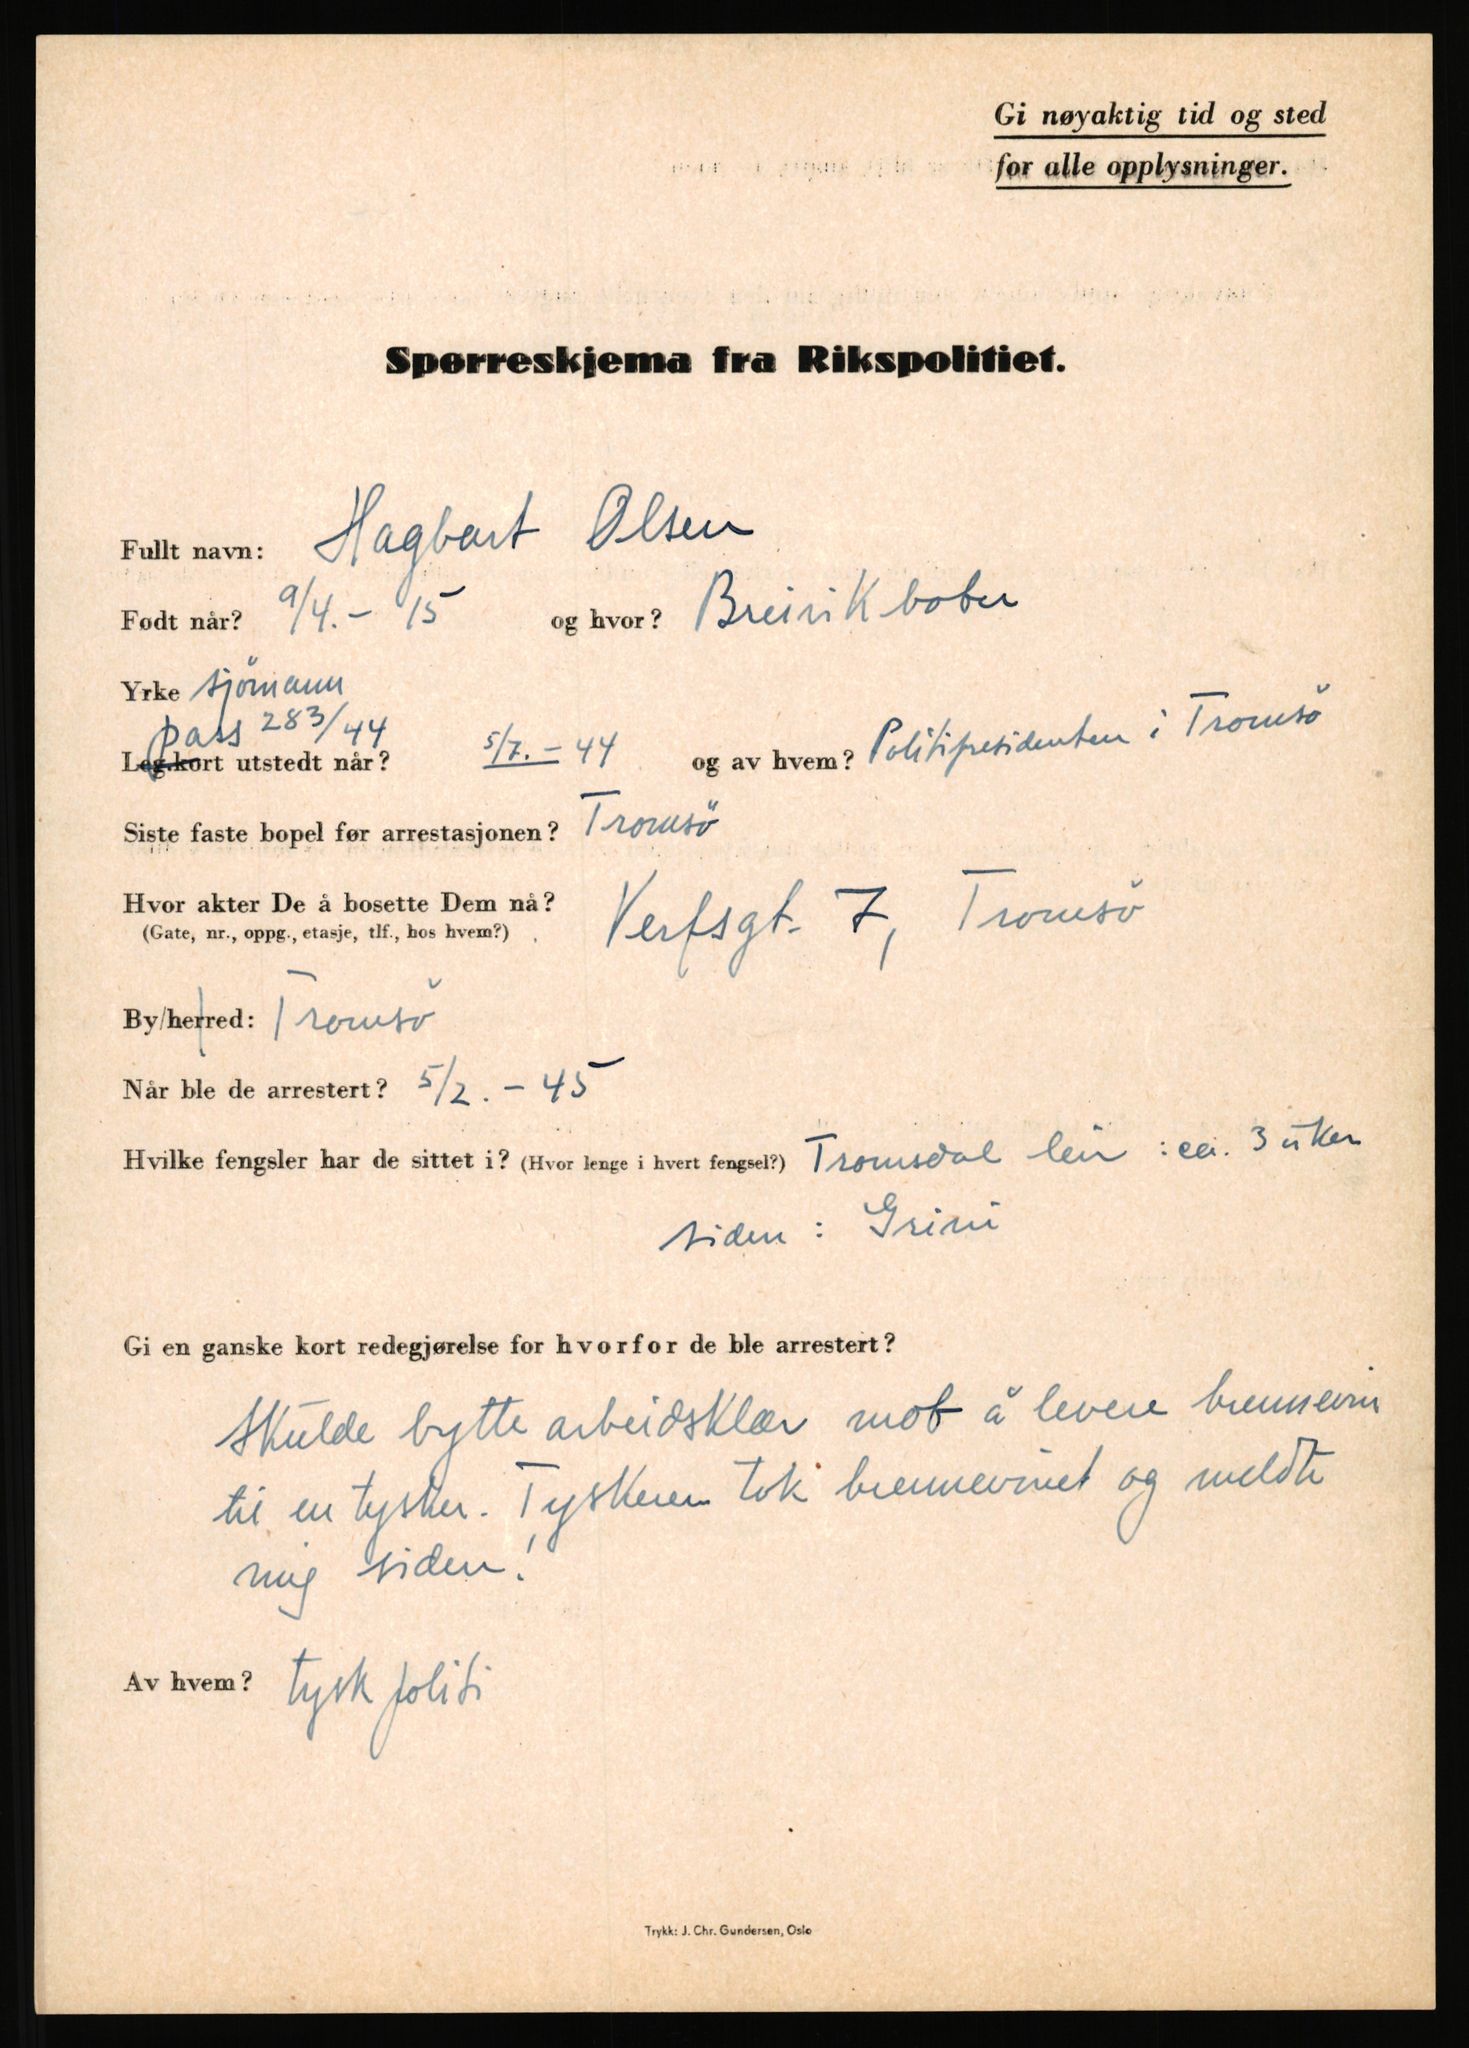 Gi nøyaktig tid og sted
for alle opplysninger.
Spørreskjema fra Rikspolitiet.
Fullt navn: Hagbart Olsen
Født når? 9/4.- 15 og hvor? Breivikboten
Yrke sjömann
pass 283/44
Leg.kort utstedt når? 5/7.-44 og av hvem? Politipresidenten i Tromsö
Siste faste bopel før arrestasjonen? Tromsö
Hvor akter De å bosette Dem nå? Verfsgt. 7, Tromsö
(Gate, nr., oppg., etasje, tlf., hos hvem?)
By/herred: Tromsö
Når ble de arrestert? 5/2.-45
Hvilke fengsler har de sittet i? (Hvor lenge i hvert fengsel?) Tromsdal leir : ca. 3 uker
siden : Grini
Gi en ganske kort redegjørelse for hvorfor de ble arrestert?
Skulde bytte arbeidsklær mot å levere brennevin
til en tysker. Tyskeren tok brennevinet og meldte
mig siden!
Av hvem? tysk politi
Trykk: J. Chr. Gundersen, Oslo